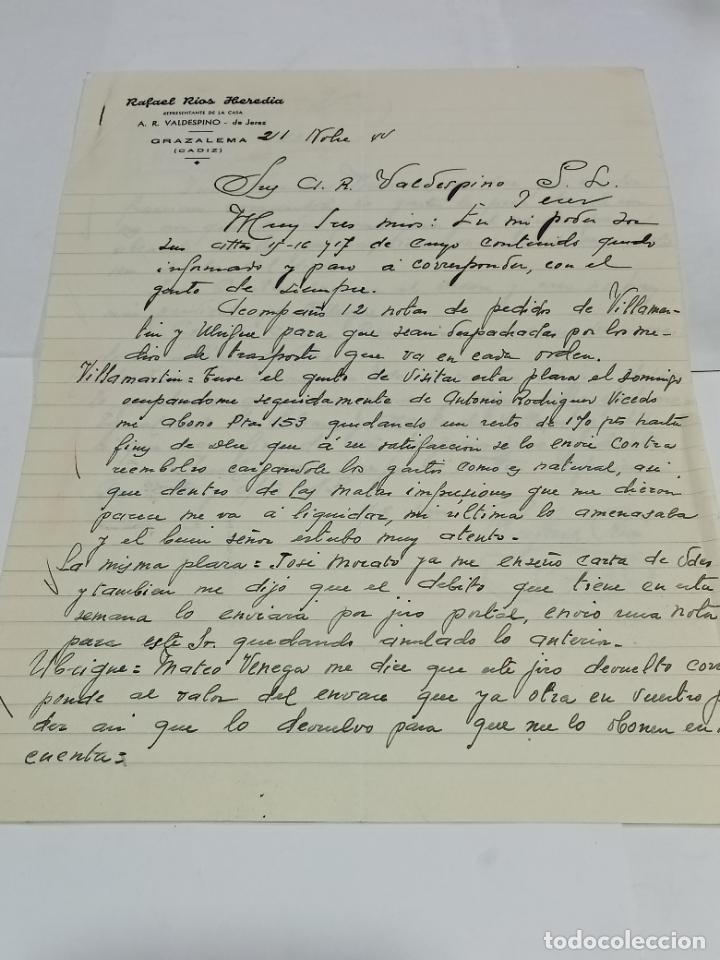 Rafael Rios Heredia
REPRESENTANTE DE LA CASA
A. R. VALDESPINO - de Jerez
GRAZALEMA
(CADIZ)
21 Nobe
A. R. Valdespino S. L.
Jerez
Muy Sres mios: En mi poder son
sus 15-16 y 17 de cuyo contenido quedo
informado y paso á corresponder, con el
gusto de siempre.
Acompaño 12 notas de pedidos de Villamar-
tin y Ubrique para que sean despachadas por los me-
dios de trasporte que va en cada orden.
Villamartin = Tuve el gusto de visitar esta plaza el Domingo
ocupandome seguidamente de Antonio Rodriguez Vicedo
me abono Ptas 153 quedando un resto de 170 pts hasta
fines de que á su satisfacción se lo envie contra
reembolso cargandole los gastos como es natural, asi
que dentro de las malas impresiones que me dieron
parece me va a liquidar, mi ultima lo amenasaba
y el buen señor estubo muy atento.
La misma plaza = José Morato ya me enseño carta de Vdes
y tambien me dijo que el debito que tiene en esta
semana lo enviará por jiro postal, envio una nota
para este Sr. quedando anulado lo anterior.
Ubrique = Mateo Venega me dice que este jiro devuelto corres
ponde al valor del envase que ya obra en vuestro po
der asi que lo devuelvo para que me lo abonen en
cuenta =
todocoleccion
todocoleccion.net